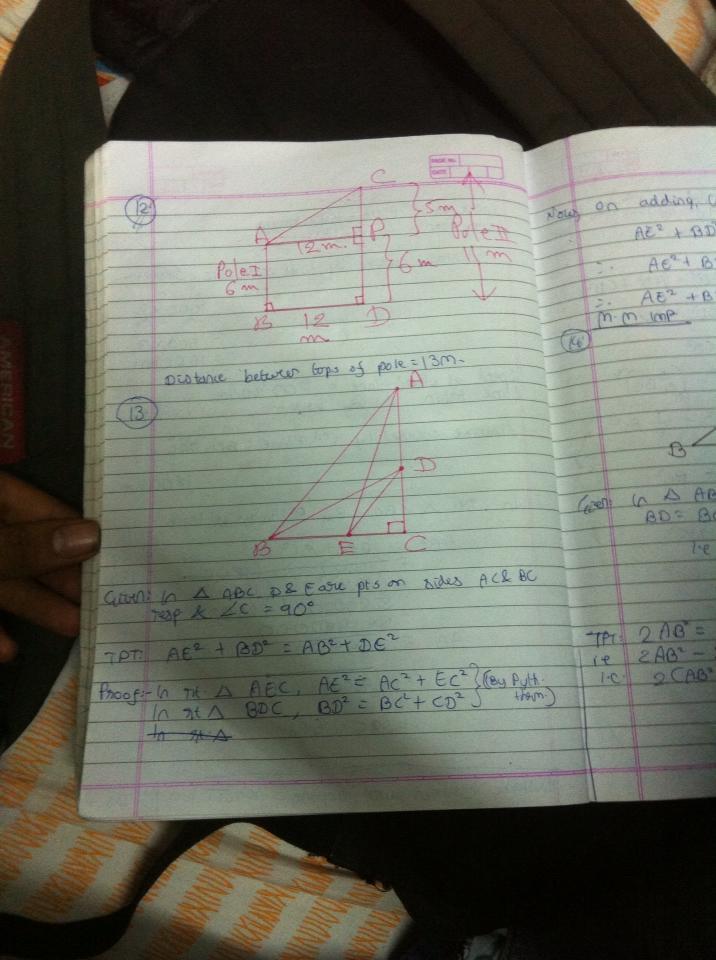 PAGE NO.
DATE
12
C
5m
A
12 m.
P
Pole II
11 m
Pole I
6 m
6 m
B
12
m
D
Distance between tops of pole = 13m.
13
A
D
B E C
Given: In △ ABC D & E are pts on sides AC & BC
resp & ∠C = 90°
TPT: AE² + BD² = AB² + DE²
Proof:- In rt △ AEC, AE² = AC² + EC²
In rt △ BDC, BD² = BC² + CD²
(By Pyth.
thm.)
In rt △
Now on adding,
AE² + BD²
∴ AE² + B
∴ AE² + B
M. M. Imp
14
B
Given: In △ AB
BD =
i.e
TPT: 2 AB² =
i.e 2AB² -
i.e. 2(AB²
AMERICAN